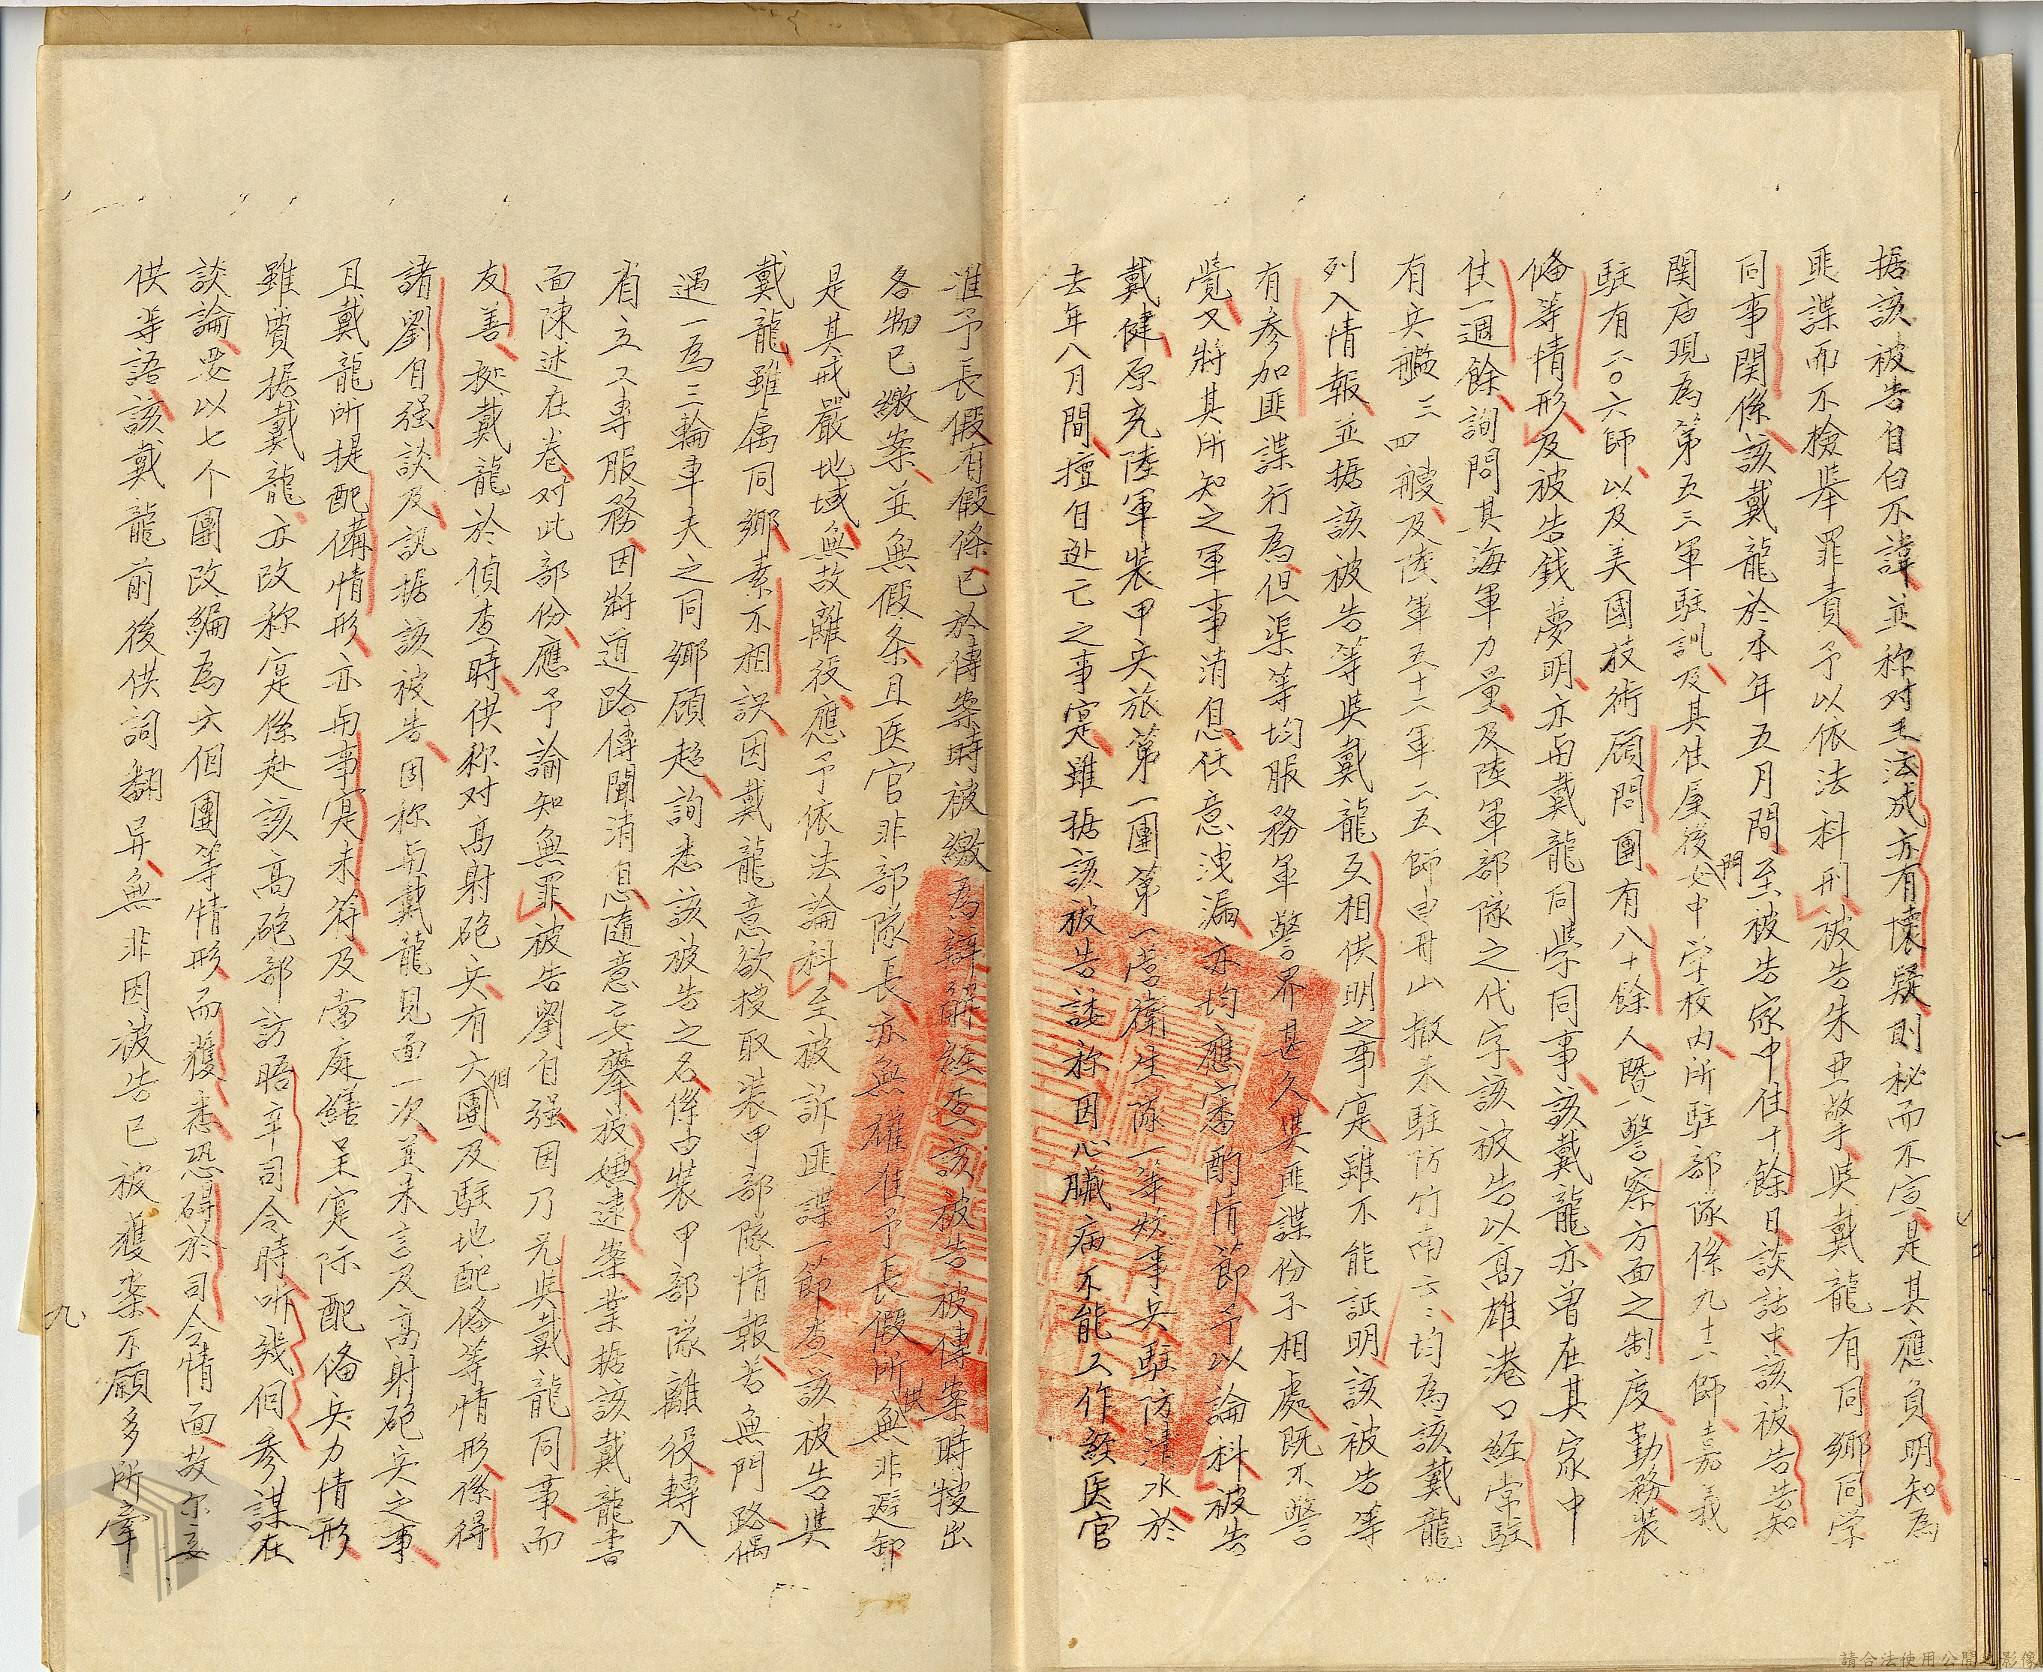 据該被告自白不諱並称对王法成亦有懷疑則秘而不宣是其應負明知為
匪諜而不檢舉罪責予以依法科刑被告朱亜擎與戴龍有同鄉同学
同事関係該戴龍於本年五月間至被告家中住十餘日談話中該被告告知
関庙現為第五三軍駐訓及其住屋後門女中学校內所駐部隊係九十二師嘉義
駐有二〇六師以及美國技術顧問團有八十餘人暨警察方面之制度勤務裝
俻等情形及被告錢夢明亦與戴龍同学同事該戴龍亦曽在其家中
住一週餘詢問其海軍力量及陸軍部隊之代字該被告以高雄港口經常駐
有兵艦三四艘及陸軍五十二軍二五師由舟山撤来駐防竹南六三均為該戴龍
列入情報並据該被告等與戴龍互相供明之事寔雖不能証明該被告等
有參加匪諜行為但渠等均服務軍警界甚久與匪諜份子相處既不警
覺又將其所知之軍事消息任意洩漏亦均應審酌情節予以論科被告
戴健原充陸軍裝甲兵旅第一團第一營衛生隊一等炊事兵駐防清水於
去年八月間擅自逃亡之事寔雖据該被告諉称因心臟病不能工作經医官
准予長假有假條已於傳案時被繳為辯解經查該被告被傳案時搜出
各物已繳案並無假条且医官非部隊長亦無權准予長假所供無非避卸
是其戒嚴地域無故離役應予依法論科至被訴匪諜一節查該被告與
戴龍雖属同鄉素不相誤因戴龍意欲搜取裝甲部隊情報苦無門路偶
遇一為三輪車夫之同鄉顧超詢悉該被告之名係由裝甲部隊離役轉入
省立工專服務因將道路傳聞消息隨意妄攀被嫌逮案業据該戴龍書
面陳述在卷对此部份應予諭知無罪被告劉自强因乃兄與戴龍同事而
友善挨戴龍於偵查時供称对高射砲兵有六個團及駐地配俻等情形係得
諸劉自强談及訊据該被告固称與戴龍見面一次並未言及高射砲兵之事
且戴龍所提配俻情形亦與事寔未符及當庭繕呈寔际配俻兵力情形
雖質据戴龍亦改称寔係赴該高砲部訪晤辛司令時听幾個參謀在
談論要以七个團改編為六個團等情形而獲悉恐碍於司令情面故尔妄
供等語該戴龍前後供詞翻异無非因被告已被獲案不願多所牽
九
請合法使用公開之影像